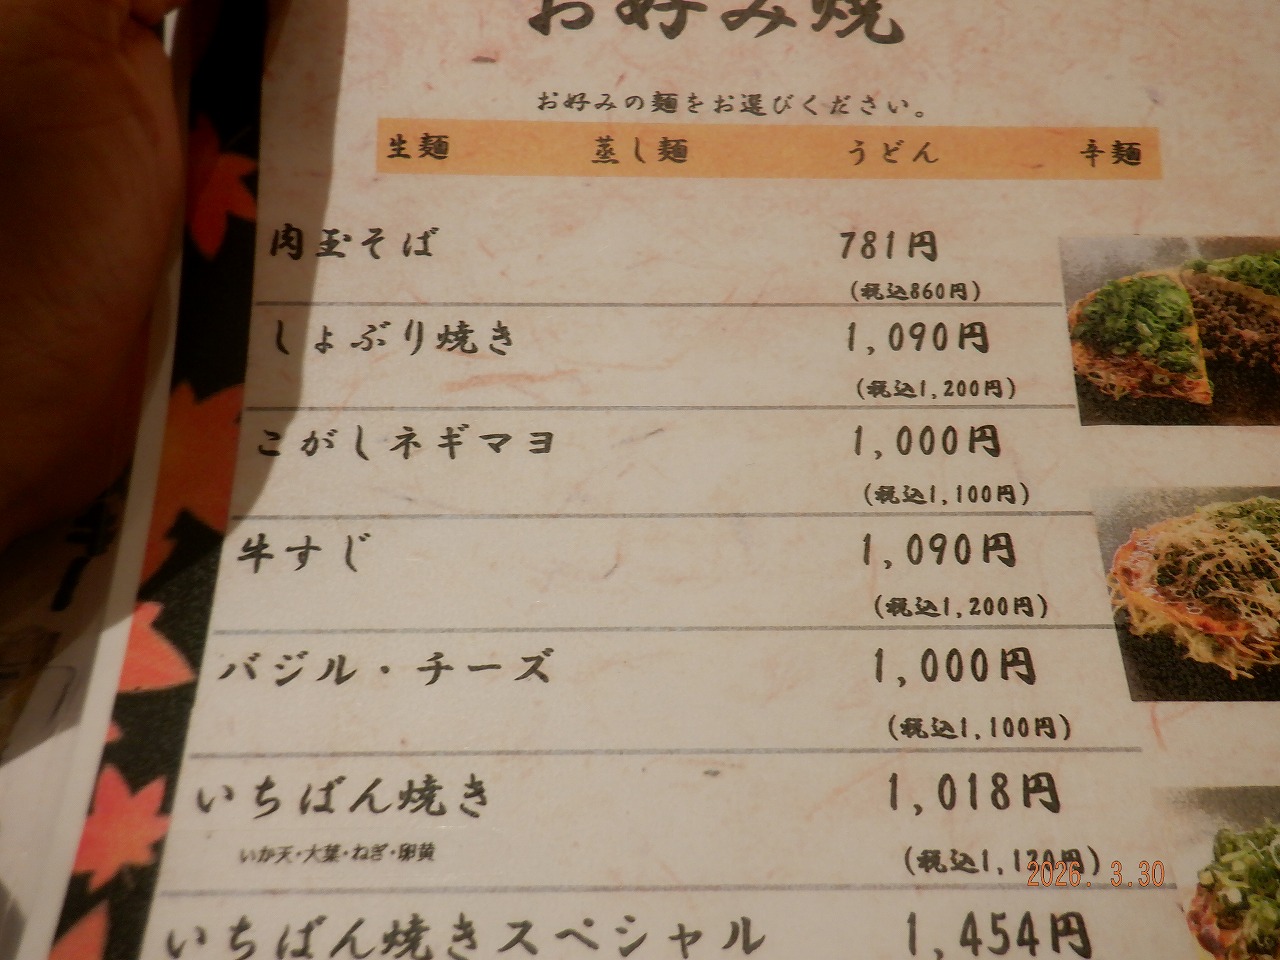 お好み焼
お好みの麺をお選びください。
生麺 蒸し麺 うどん 辛麺
肉玉そば 781円
(税込860円)
しょぶり焼き 1,090円
(税込1,200円)
こがしネギマヨ 1,000円
(税込1,100円)
牛すじ 1,090円
(税込1,200円)
バジル・チーズ 1,000円
(税込1,100円)
いちばん焼き 1,018円
いか天・大葉・ねぎ・卵黄
(税込1,120円)
2026. 3.30
いちばん焼きスペシャル 1,454円